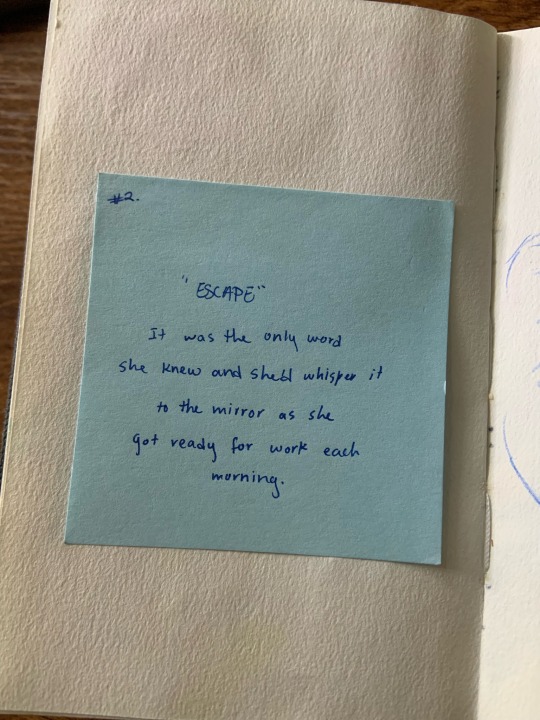 #2.
"ESCAPE"
It was the only word
she knew and she'd whisper it
to the mirror as she
got ready for work each
morning.